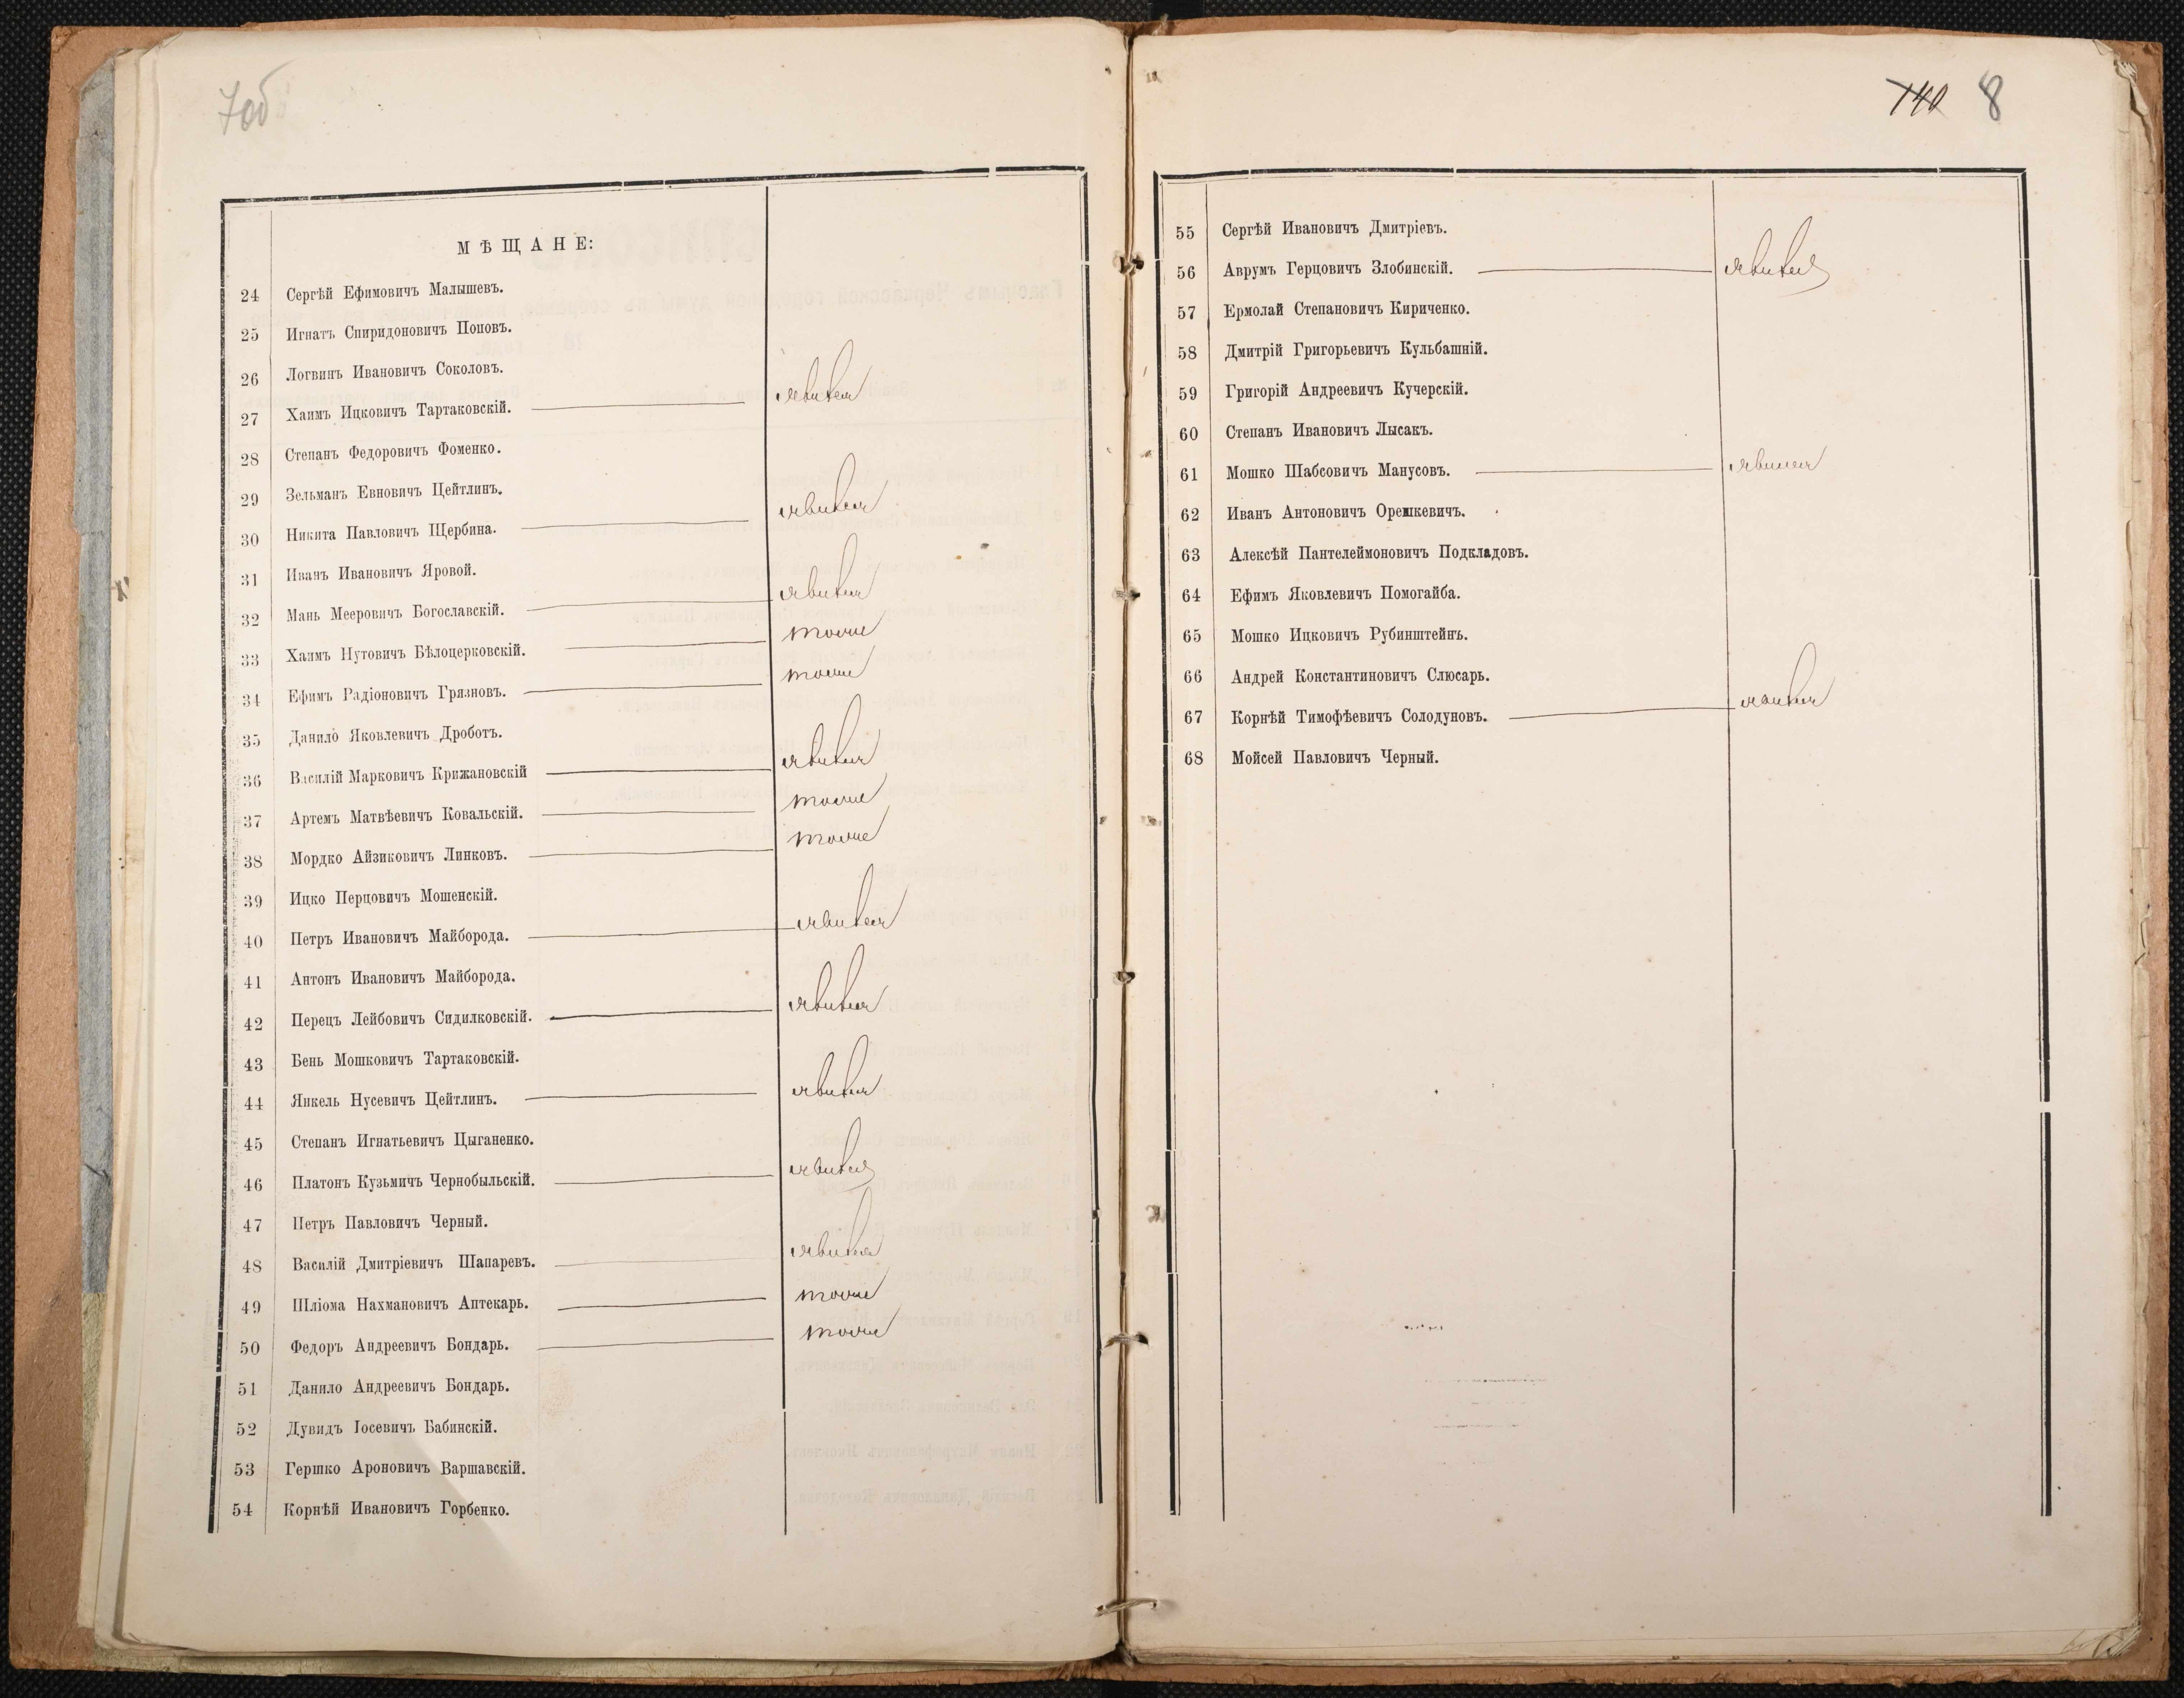 7об
МѢЩАНЕ:
24 Сергѣй Ефимовичъ Малышевъ.
25 Игнатъ Спиридоновичъ Поповъ.
26 Логвинъ Ивановичъ Соколовъ.
27 Хаимъ Ицковичъ Тартаковскій. явился
28 Степанъ Федоровичъ Фоменко.
29 Зельманъ Евновичъ Цейтлинъ.
30 Никита Павловичъ Щербина. явился
31 Иванъ Ивановичъ Яровой.
32 Мань Мееровичъ Богославскій. явился
33 Хаимъ Нутовичъ Бѣлоцерковскій. тоже
34 Ефимъ Радіоновичъ Грязновъ. тоже
35 Данило Яковлевичъ Дроботъ.
36 Василій Марковичъ Крижановскій явился
37 Артемъ Матвѣевичъ Ковальскій. тоже
38 Мордко Айзиковичъ Линковъ. тоже
39 Ицко Перцовичъ Мошенскій.
40 Петръ Ивановичъ Майборода. явился
41 Антонъ Ивановичъ Майборода.
42 Перецъ Лейбовичъ Сидилковскій. явился
43 Бень Мошковичъ Тартаковскій.
44 Янкель Нусевичъ Цейтлинъ. явился
45 Степанъ Игнатьевичъ Цыганенко.
46 Платонъ Кузьмичъ Чернобыльскій. явился
47 Петръ Павловичъ Черный.
48 Василій Дмитріевичъ Шапаревъ. явился
49 Шліома Нахмановичъ Аптекарь. тоже
50 Федоръ Андреевичъ Бондарь. тоже
51 Данило Андреевичъ Бондарь.
52 Дувидъ Іосевичъ Бабинскій.
53 Гершко Ароновичъ Варшавскій.
54 Корнѣй Ивановичъ Горбенко.
140 8
55 Сергѣй Ивановичъ Дмитріевъ.
56 Аврумъ Герцовичъ Злобинскій. явился
57 Ермолай Степановичъ Кириченко.
58 Дмитрій Григорьевичъ Кульбашній.
59 Григорій Андреевичъ Кучерскій.
60 Степанъ Ивановичъ Лысакъ.
61 Мошко Шабсовичъ Манусовъ. явился
62 Иванъ Антоновичъ Орешкевичъ.
63 Алексѣй Пантелеймоновичъ Подкладовъ.
64 Ефимъ Яковлевичъ Помогайба.
65 Мошко Ицковичъ Рубинштейнъ.
66 Андрей Константиновичъ Слюсарь.
67 Корнѣй Тимофѣевичъ Солодуновъ. явился
68 Мойсей Павловичъ Черный.